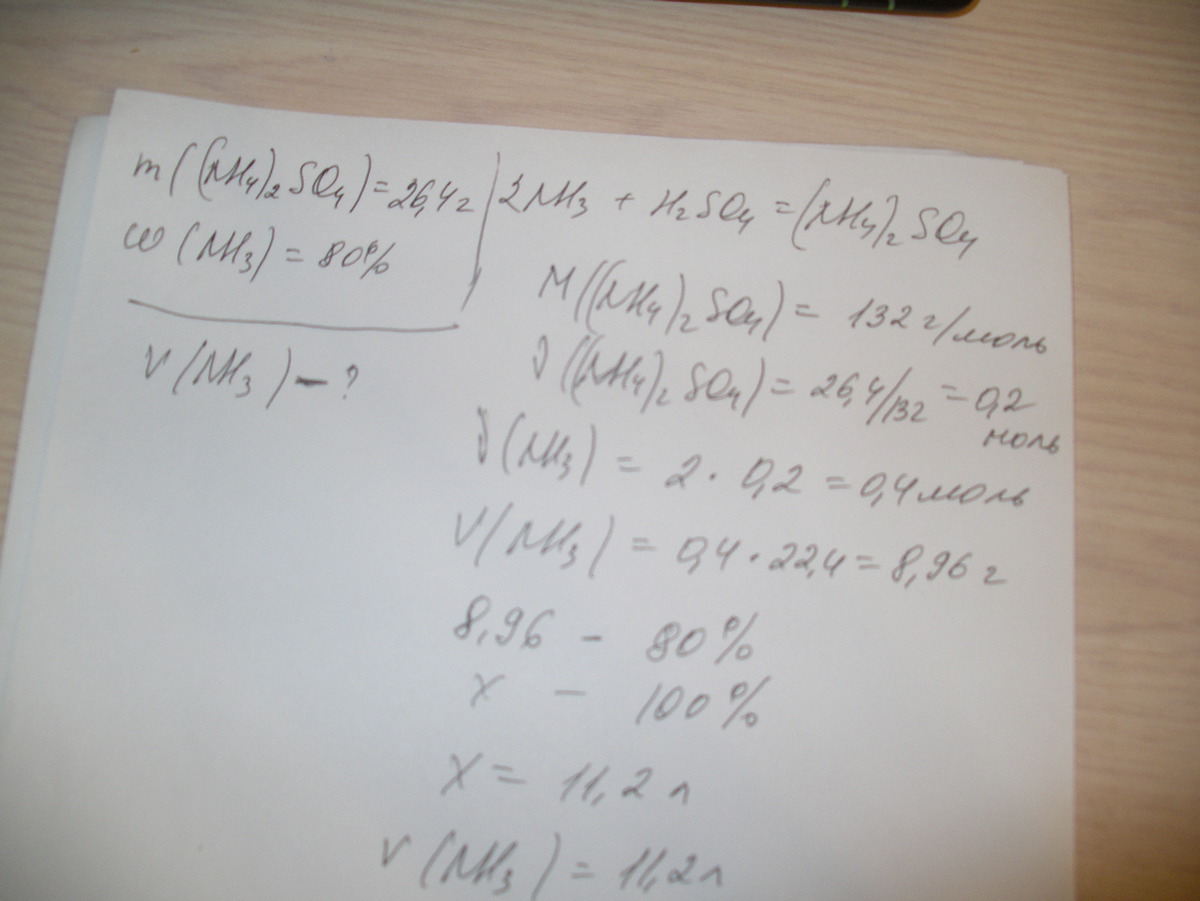 m((NH₄)₂SO₄) = 26,4 г
ω(NH₃) = 80%
V(NH₃) – ?
2NH₃ + H₂SO₄ = (NH₄)₂SO₄
M((NH₄)₂SO₄) = 132 г/моль
ν((NH₄)₂SO₄) = 26,4/132 = 0,2
моль
ν(NH₃) = 2 · 0,2 = 0,4 моль
V(NH₃) = 0,4 · 22,4 = 8,96 г
8,96 – 80%
x – 100%
x = 11,2 л
V(NH₃) = 11,2 л